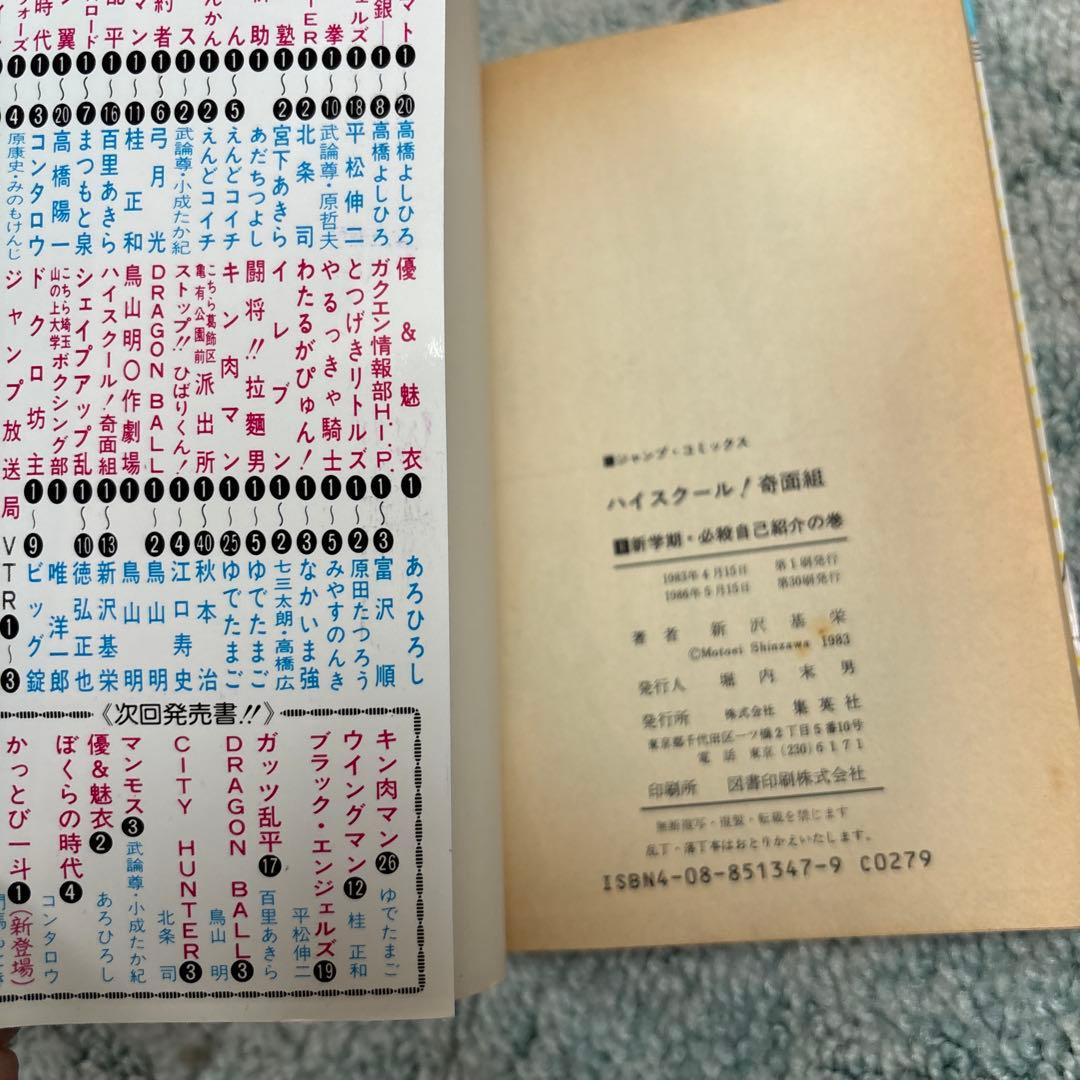 マト❶〜⓴高橋よしひろ
銀―❶〜❽高橋よしひろ
ェルズ❶〜⓲平松伸二
拳❶〜❿武論尊・原哲夫
ER❶〜❷北条司
塾❶〜❷宮下あきら
助❶あだちつよし
ん❶〜❺えんどコイチ
んかん❶〜❷えんどコイチ
ス❶〜❷武論尊・小成たか紀
約者❶〜❻弓月光
マン❶〜⓫桂正和
乱平❶〜⓰百里あきら
ロード❶〜❼まつもと泉
翼❶〜⓴高橋陽一
時代❶〜❸コンタロウ
ォーズ❶〜❹原康史・みのもけんじ
優&魅衣❶あろひろし
ガクエン情報部H.I.P.❶〜❸富沢順
とつげきリトルズ❶〜❷原田たつろう
やるっきゃ騎士❶〜❺みやすのんき
わたるがぴゅん!❶〜❸なかいま強
イレブン❶〜❷七三太朗・高橋広
闘将!!拉麵男❶〜❺ゆでたまご
キン肉マン❶〜㉕ゆでたまご
こちら葛飾区亀有公園前派出所❶〜㊵秋本治
ストップ!!ひばりくん!❶〜❹江口寿史
DRAGON BALL❶〜❷鳥山明
鳥山明〇作劇場❶鳥山明
ハイスクール!奇面組❶〜⓭新沢基栄
シェイプアップ乱❶〜❿徳弘正也
こちら埼玉山の上大学ボクシング部❶唯洋一郎
ドクロ坊主❶〜❾ビッグ錠
ジャンプ放送局VTR❶〜❸
《次回発売書!!》
キン肉マン㉖ゆでたまご
ウイングマン⓬桂正和
ブラック・エンジェルズ⓳平松伸二
ガッツ乱平⓱百里あきら
DRAGON BALL❸鳥山明
CITY HUNTER❸北条司
マンモス❸武論尊・小成たか紀
優&魅衣❷あろひろし
ぼくらの時代❹コンタロウ
かっとび一斗❶(新登場)
■ジャンプ・コミックス
ハイスクール!奇面組
1新学期・必殺自己紹介の巻
1983年4月15日 第1刷発行
1986年5月15日 第30刷発行
著者 新沢基栄
©Motoei Shinzawa 1983
発行人 堀内末男
発行所 株式会社 集英社
東京都千代田区一ツ橋2丁目5番10号
電話 東京(230)6171
印刷所 図書印刷株式会社
無断複写・複製・転載を禁じます
乱丁・落丁本はおとりかえいたします。
ISBN4-08-851347-9 C0279